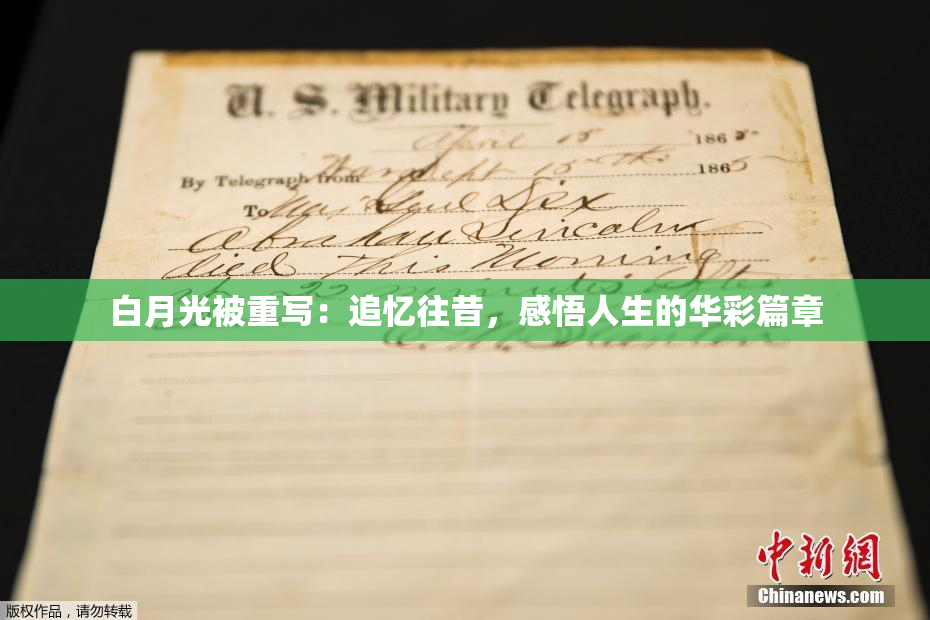 U. S. Military Telegraph.
April 15 1865
By Telegraph from War Dept 15th 1865
To Maj Genl Dix
Abraham Lincoln
died this Morning
22 minutes after
白月光被重写：追忆往昔，感悟人生的华彩篇章
E. M. Stanton
中新网
Chinanews.com
版权作品，请勿转载